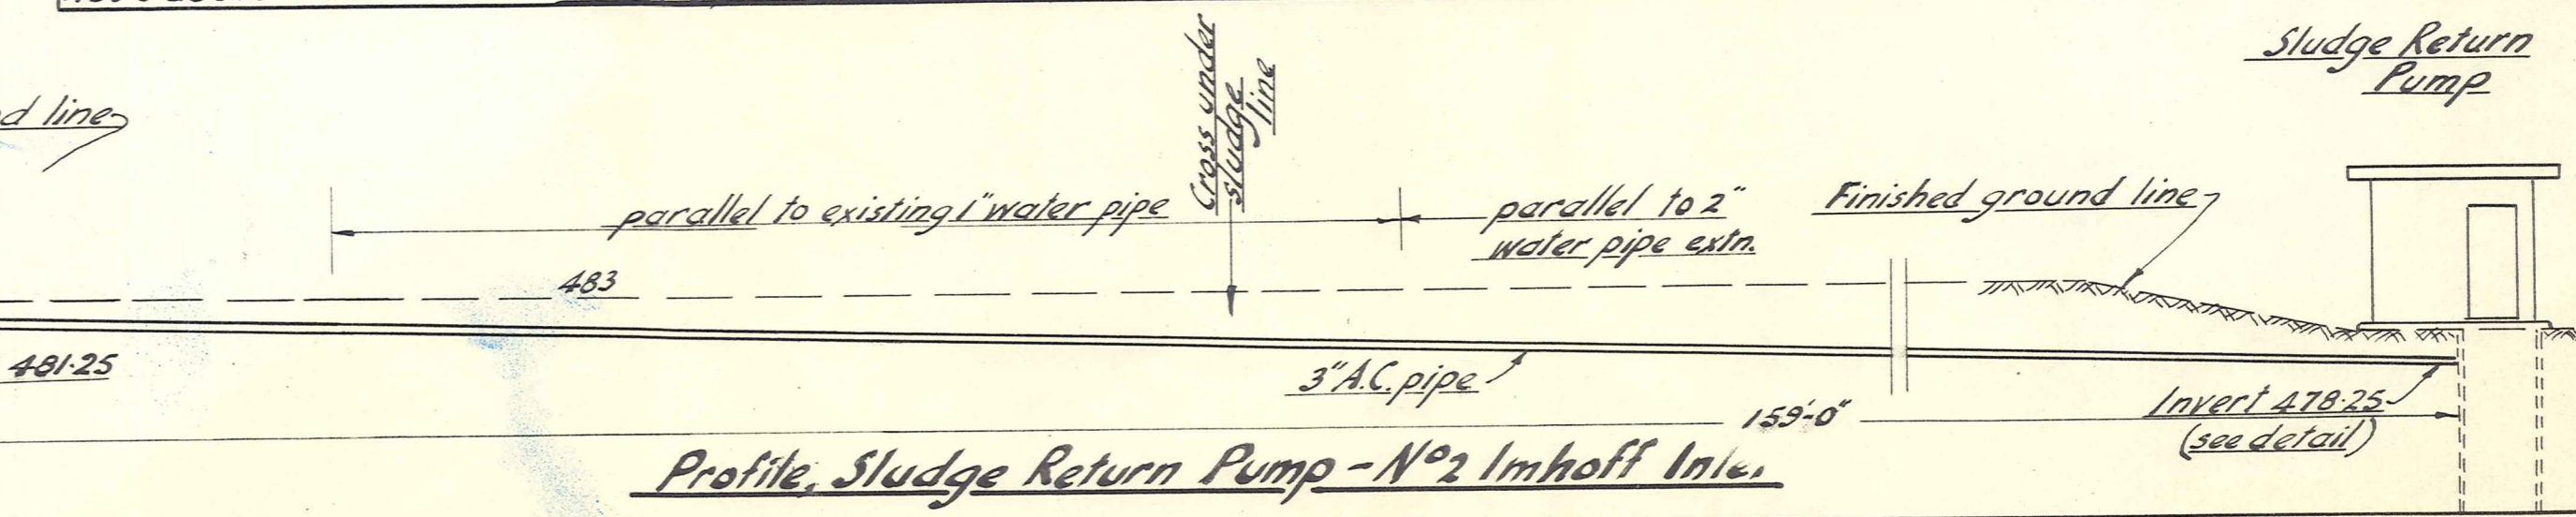 Sludge Return
Pump
Cross under
sludge
line
line
parallel to existing 1" water pipe
parallel to 2"
water pipe extn.
Finished ground line
483
481·25
3" A.C. pipe
159'-0"
Invert 478·25
(see detail)
Profile, Sludge Return Pump - Nº2 Imhoff